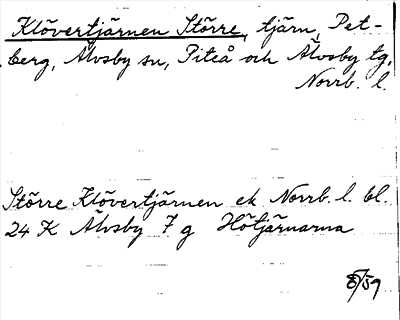 Klövertjärnen Större, tjärn, Pet-
berg, Älvsby sn, Piteå och Älvsby tg,
Norrb. l.
Större Klövertjärnen ek Norrb. l. bl.
24 K Älvsby 7 g Hötjärnarna
8/59